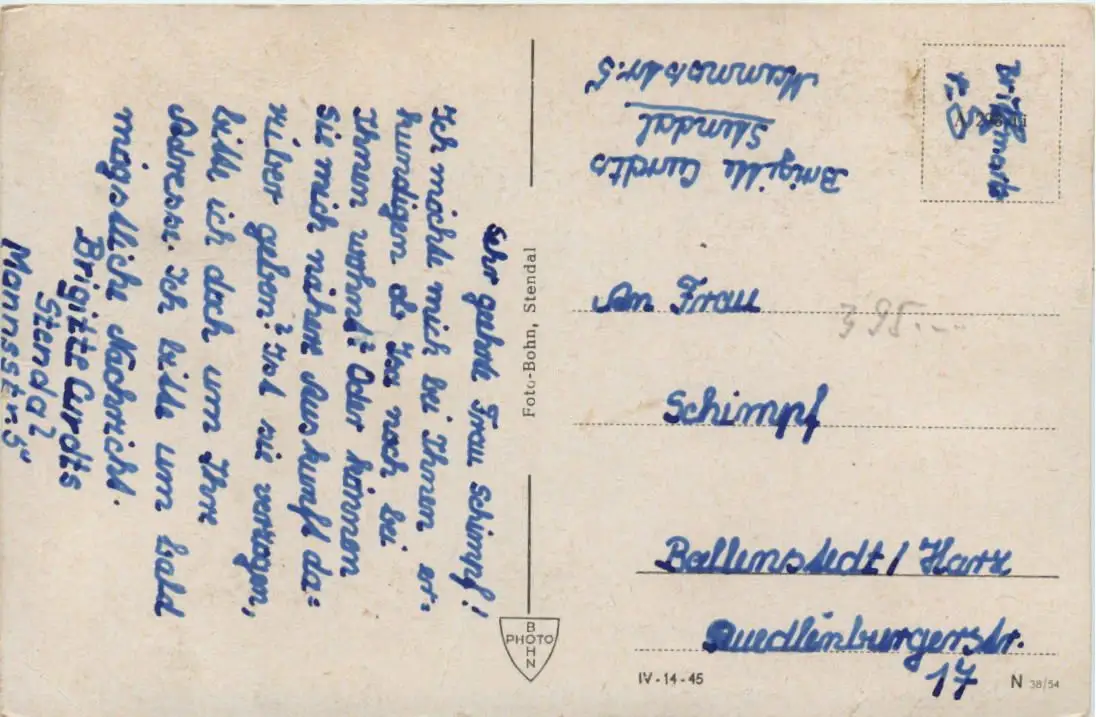 Sehr geehrte Frau Schimpf!
Ich möchte mich bei Ihnen er=
kundigen ob noch bei
Ihnen wohnt? Oder können
Sie mich nähere Auskunft da=
rüber geben? Ist sie verzogen,
bitte ich doch um Ihre
Adresse. Ich bitte um bald
Nachricht.
Brigitte Curdts
Stendal
Mannsstr. 5
Foto-Bohn, Stendal
BOHN PHOTO
Brigitte Curdts
Stendal
Mannsstr. 5
An Frau
395.---
Schimpf
Ballenstedt / Harz
Quedlinburgerstr.
17
IV-14-45
N 38/54